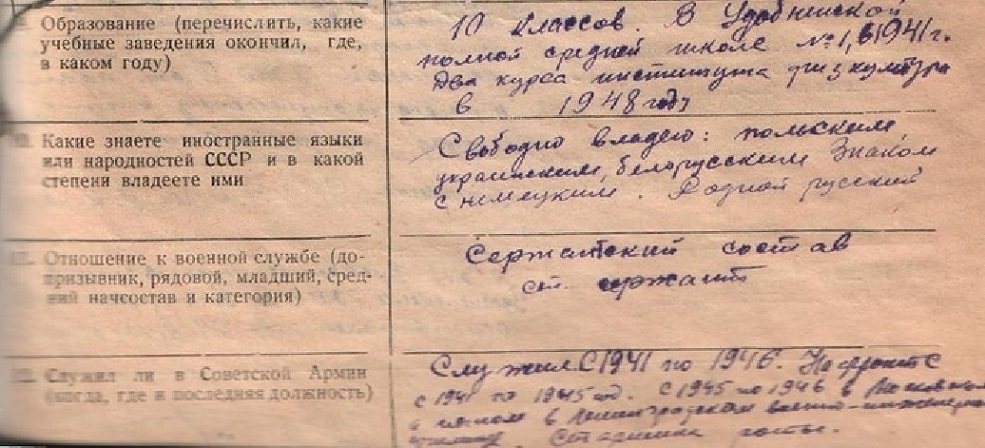 Образование (перечислить, какие
учебные заведения окончил, где,
в каком году)
10 классов. В Удобненской
полной средней школе №1, в 1941 г.
Два курса института физкультуры
в 1948 году
Какие знаете иностранные языки
или народностей СССР и в какой
степени владеете ими
Свободно владею: польским,
украинским, белорусским Знаком
с немецким. Родной русский
Отношение к военной службе (до-
призывник, рядовой, младший, сред-
ний начсостав и категория)
Сержантский состав
ст. сержант
Служил ли в Советской Армии
(когда, где и последняя должность)
Служил с 1941 по 1946. На фронте
с 1941 по 1945 год. С 1945 по 1946 в
в Ленинградском военно-инженерном
училище. Старшина роты.